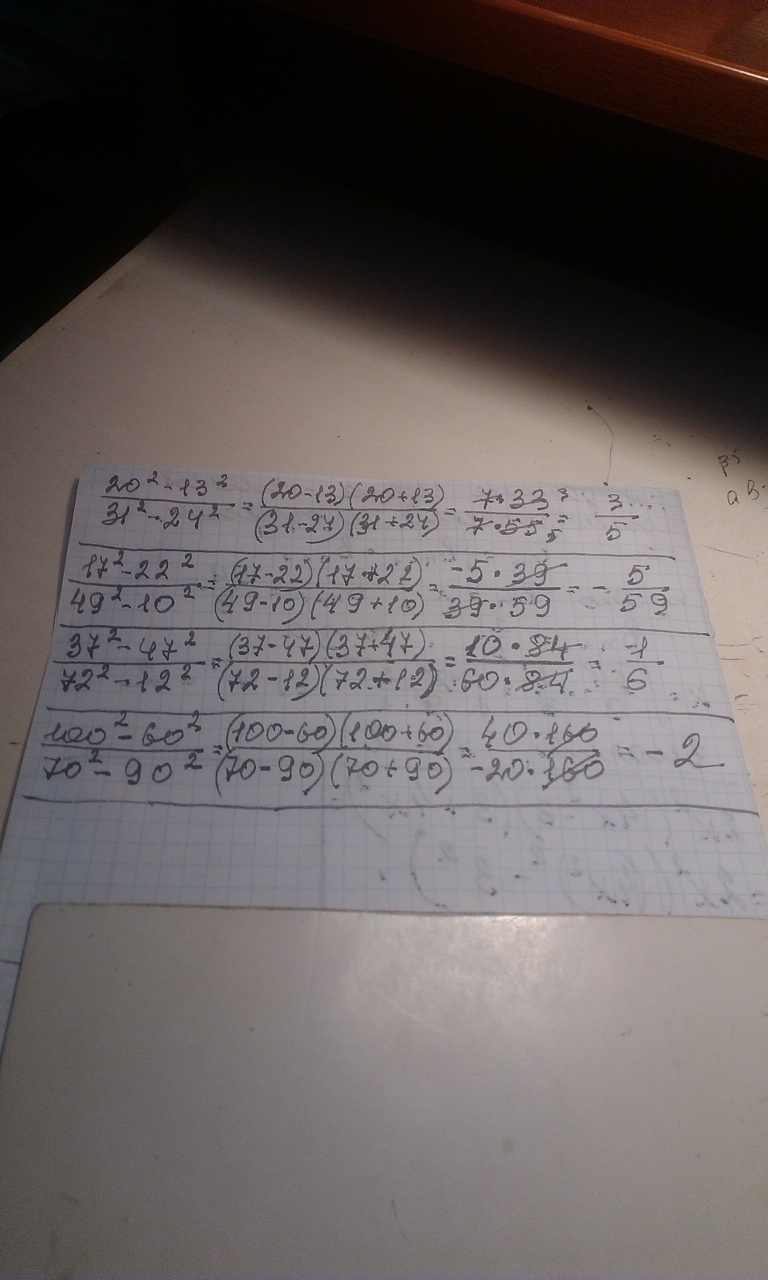 20² - 13² / 31² - 24² = (20-13)(20+13) / (31-27)(31+24) = 7·33 3 / 7·55 5 = 3/5
17² - 22² / 49² - 10² = (17-22)(17+22) / (49-10)(49+10) = -5·39 / 39·59 = - 5/59
37² - 47² / 72² - 12² = (37-47)(37+47) / (72-12)(72+12) = 10·84 / 60·84 = -1/6
100² - 60² / 70² - 90² = (100-60)(100+60) / (70-90)(70+90) = 40·160 / -20·160 = -2